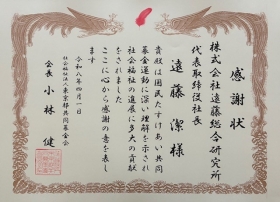 感謝状
株式会社遠藤総合研究所
代表取締役社長
遠藤潔様
貴殿は国民たすけあい共同
募金運動に深い理解を示され
社会福祉の進展に多大の貢献
をされました
ここに心から感謝の意を表し
ます
令和八年四月一日
社会福祉法人東京都共同募金会
会長 小林健